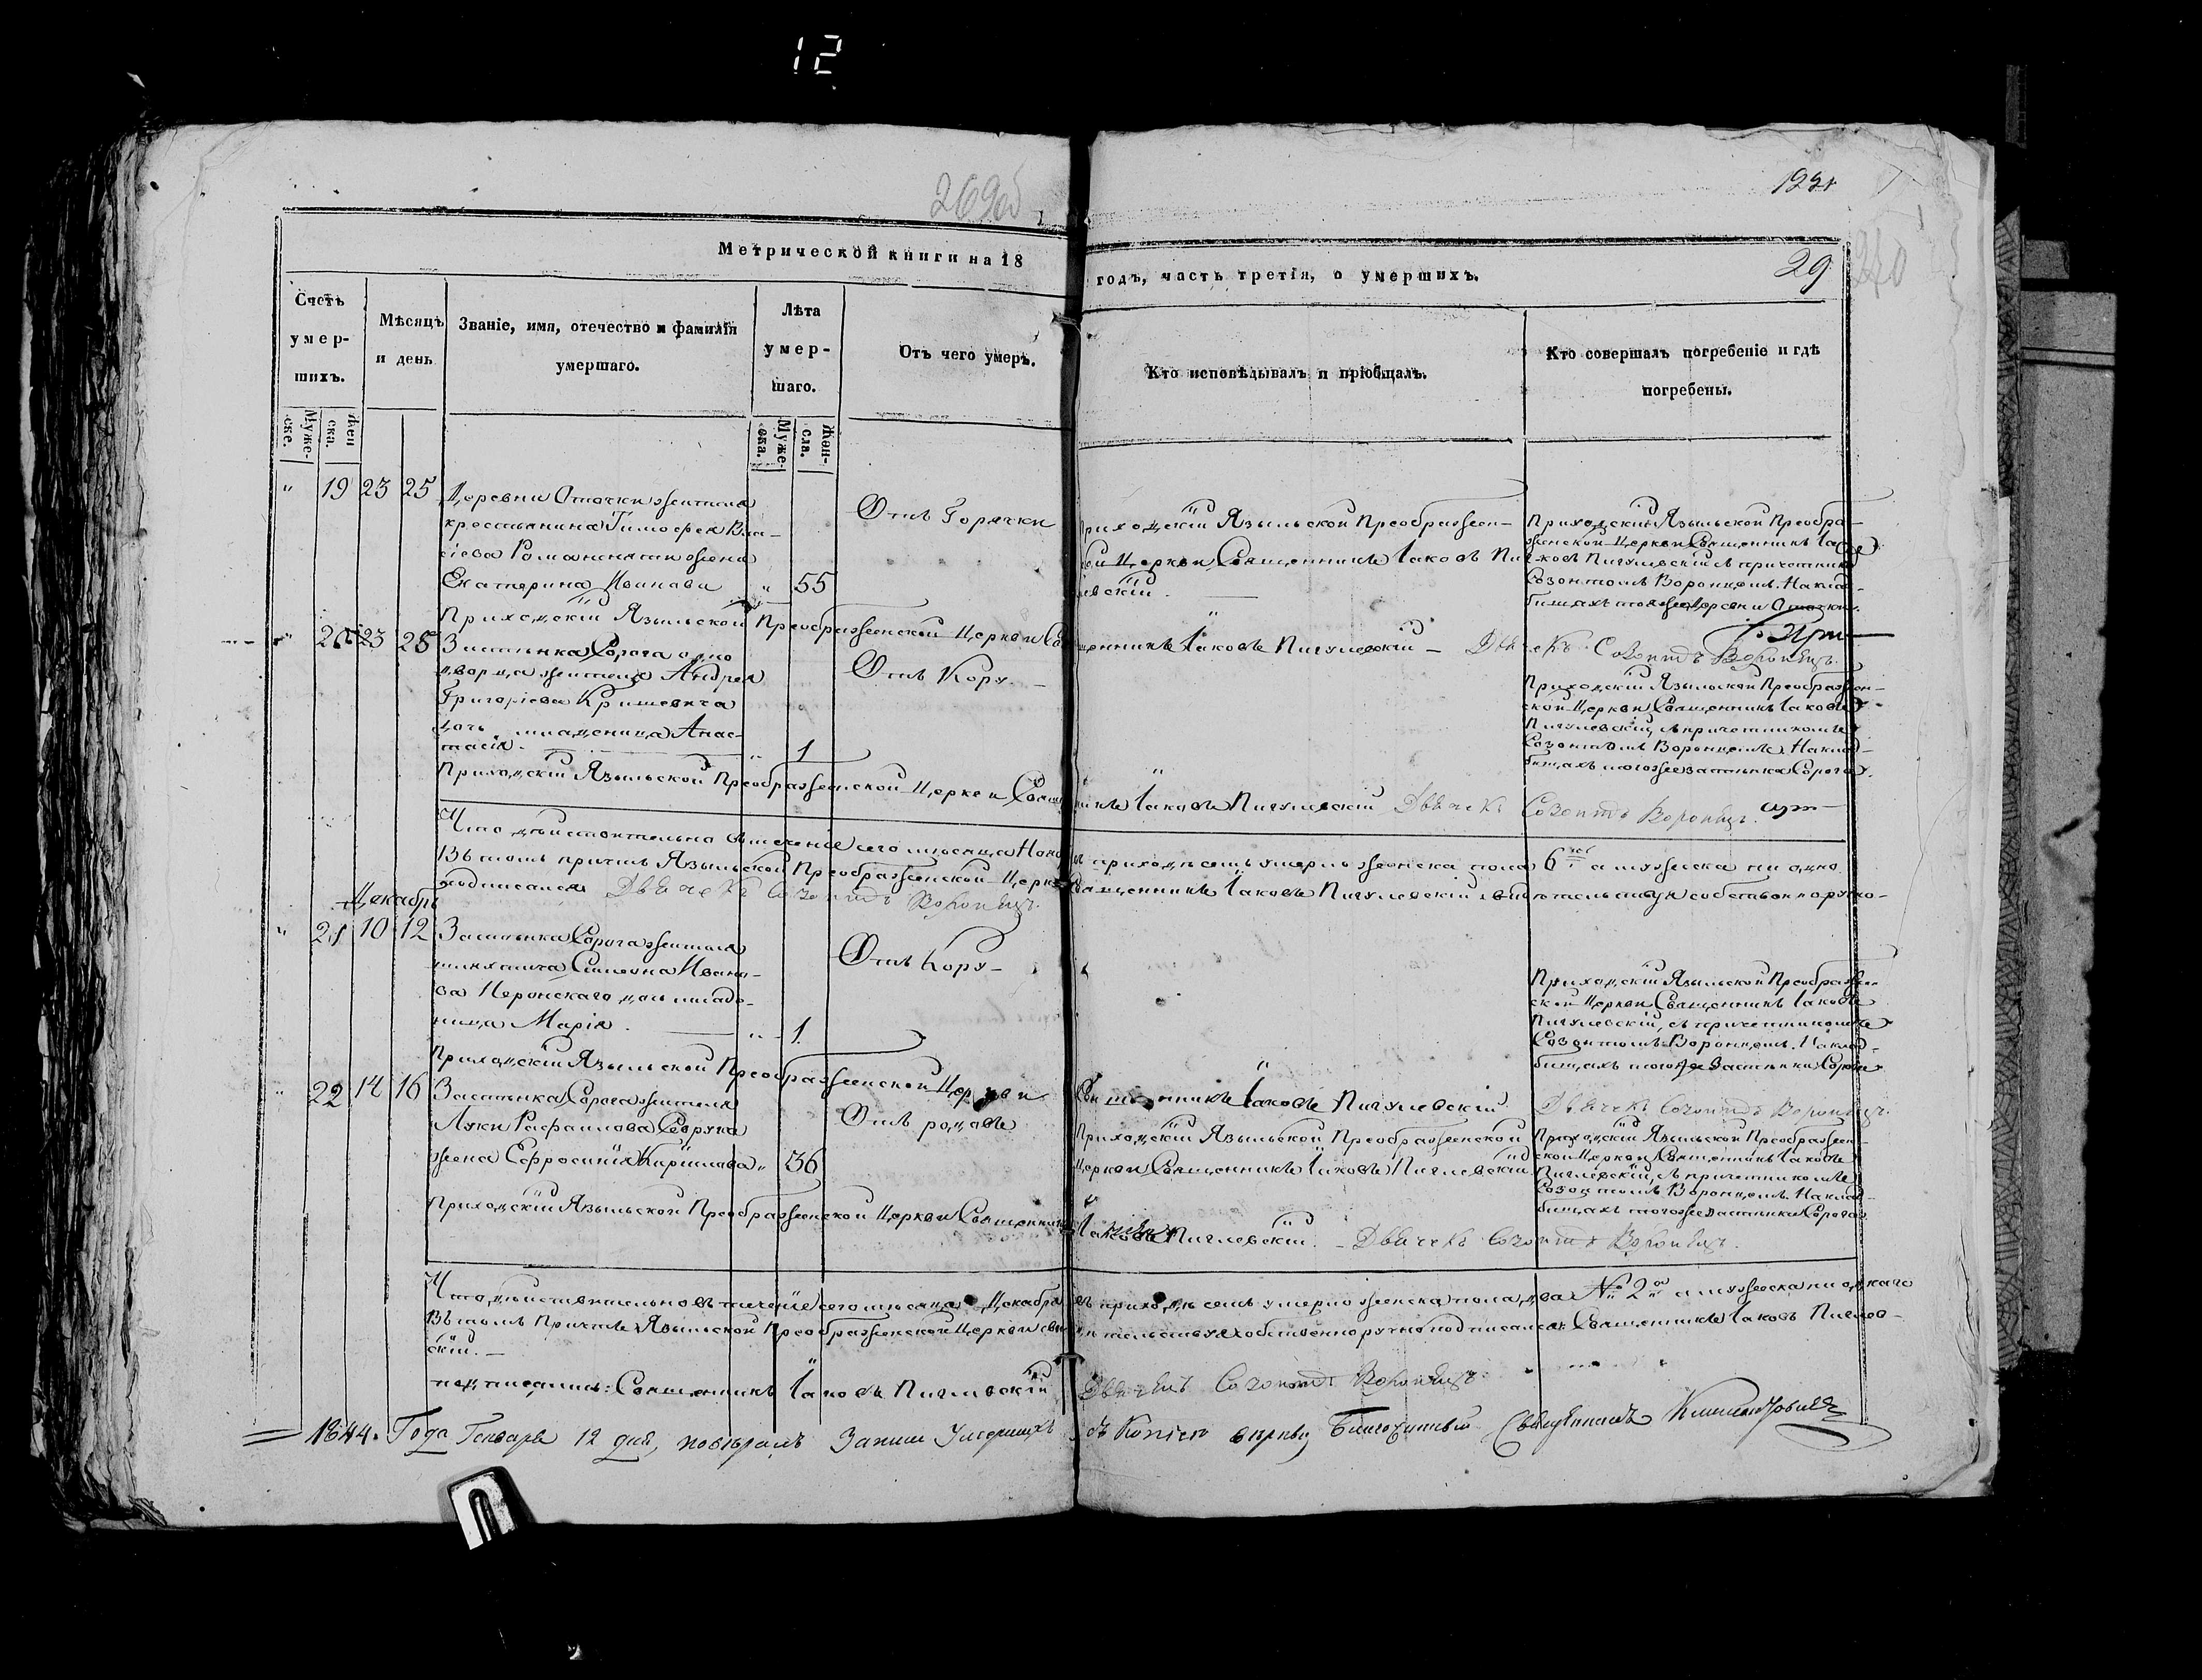 12
269об
1231
Метрической книги на 18
годъ, часть третія, о умершихъ.
29
270
Счетъ умер-шихъ.
Мѣсяцъ и день
Званіе, имя, отечество и фамилія умершаго.
Лѣта умер-шаго.
Отъ чего умеръ.
Кто исповѣдывалъ и пріобщалъ.
Кто совершалъ погребеніе и гдѣ погребены.
Муже-ске.
Жен ска.
Муже-ска.
Жен-ска.
" 19 23 25
Деревни Оточки жителя
крестьянина Тимофея Вла-
сіева жена
Екатерина Иванова " 55
Отъ Горячки
Приходскій Языльской Преображен-
ской Церкви Священникъ Іаковъ Пигу-
левскій.
Приходскій Языльской Преобра-
женской Церкви Священникъ Іа-
ковъ Пигулевскій съ причетникомъ
Созонтомъ Воронцемъ. На клад-
бищахъ тойже Деревни Оточки.
Приходскій Языльской Преображенской Церкви Священникъ Іаковъ Пигулевскій – Дьячекъ Созонтъ Воронецъ.
" 20 23 25
Застѣнка Сорога одно
дворца жителя Андрея
Григоріева Кришевича
дочь младеница Анас-
тасія. " 1
Отъ Кору.
Приходскій Языльской Преображен-
ской Церкви Священникъ Іаковъ
Пигулевскій, съ причетникомъ
Созонтомъ Воронцемъ. На клад-
бищахъ тогоже застѣнка Сорога.
Приходскій Языльской Преображенской Церкви Священникъ Іаковъ Пигулевскій Дьячекъ Созонтъ Воронецъ.
Что дѣйствительно втеченіе сего мѣсяца Нояб въ приходѣ семъ умерло женска пола 6 а мужеска ни одно
Въ томъ причтъ Языльской Преображенской Церкви Священникъ Іаковъ Пигулевскій свидѣтельствуя собственноручно-
подписался Дьячекъ Созонтъ Воронецъ.
Декабрь
" 21 10 12
Застѣнка Сорога жителя
шляхтича Симеона Ивано-
ва Неронскаго дочь младе-
ница Марія. " 1
Отъ Кору-
Приходскій Языльской Преображен-
ской Церкви Священникъ Іаковъ
Пигулевскій, съ причетникомъ
Созонтомъ Воронцемъ. На клад-
бищахъ тогоже Застѣнка Сорога
Приходскій Языльской Преображенской Церкви Священникъ Іаковъ Пигулевскій Дьячекъ Созонтъ Воронецъ.
" 22 14 16
Застѣнка Сорога жителя
Луки Рафаилова Севрука
жена Ефросинія Кирилова " 36
Отъ родовъ
Приходскій Языльской Преображенской
Церкви Священникъ Іаковъ Пигулевскій
Приходскій Языльской Преображен-
ской Церкви Священникъ Іаковъ
Пигулевскій, съ причетникомъ
Созонтомъ Воронцемъ. На клад-
бищахъ тогоже застѣнка Сорога
Приходскій Языльской Преображенской Церкви Священникъ Іаковъ Пигулевскій. – Дьячекъ Созонтъ Воронецъ.
Что дѣйствительно въ теченіе сего мѣсяца Декабря въ приходѣ семъ умерло женска пола два № 2 а мужеска ни однаго
Въ томъ Причтъ Языльской Преображенской Церкви свидѣтельствуя собственноручно подписался: Священникъ Іаковъ Пигулев-
скій. –
подписались: Священникъ Іаковъ Пигулевскій Дьячекъ Созонтъ Воронецъ
1844. Года Генваря 12 дня, повѣрялъ Записи Умершихъ съ Копіею вѣрны Благочинный Священникъ